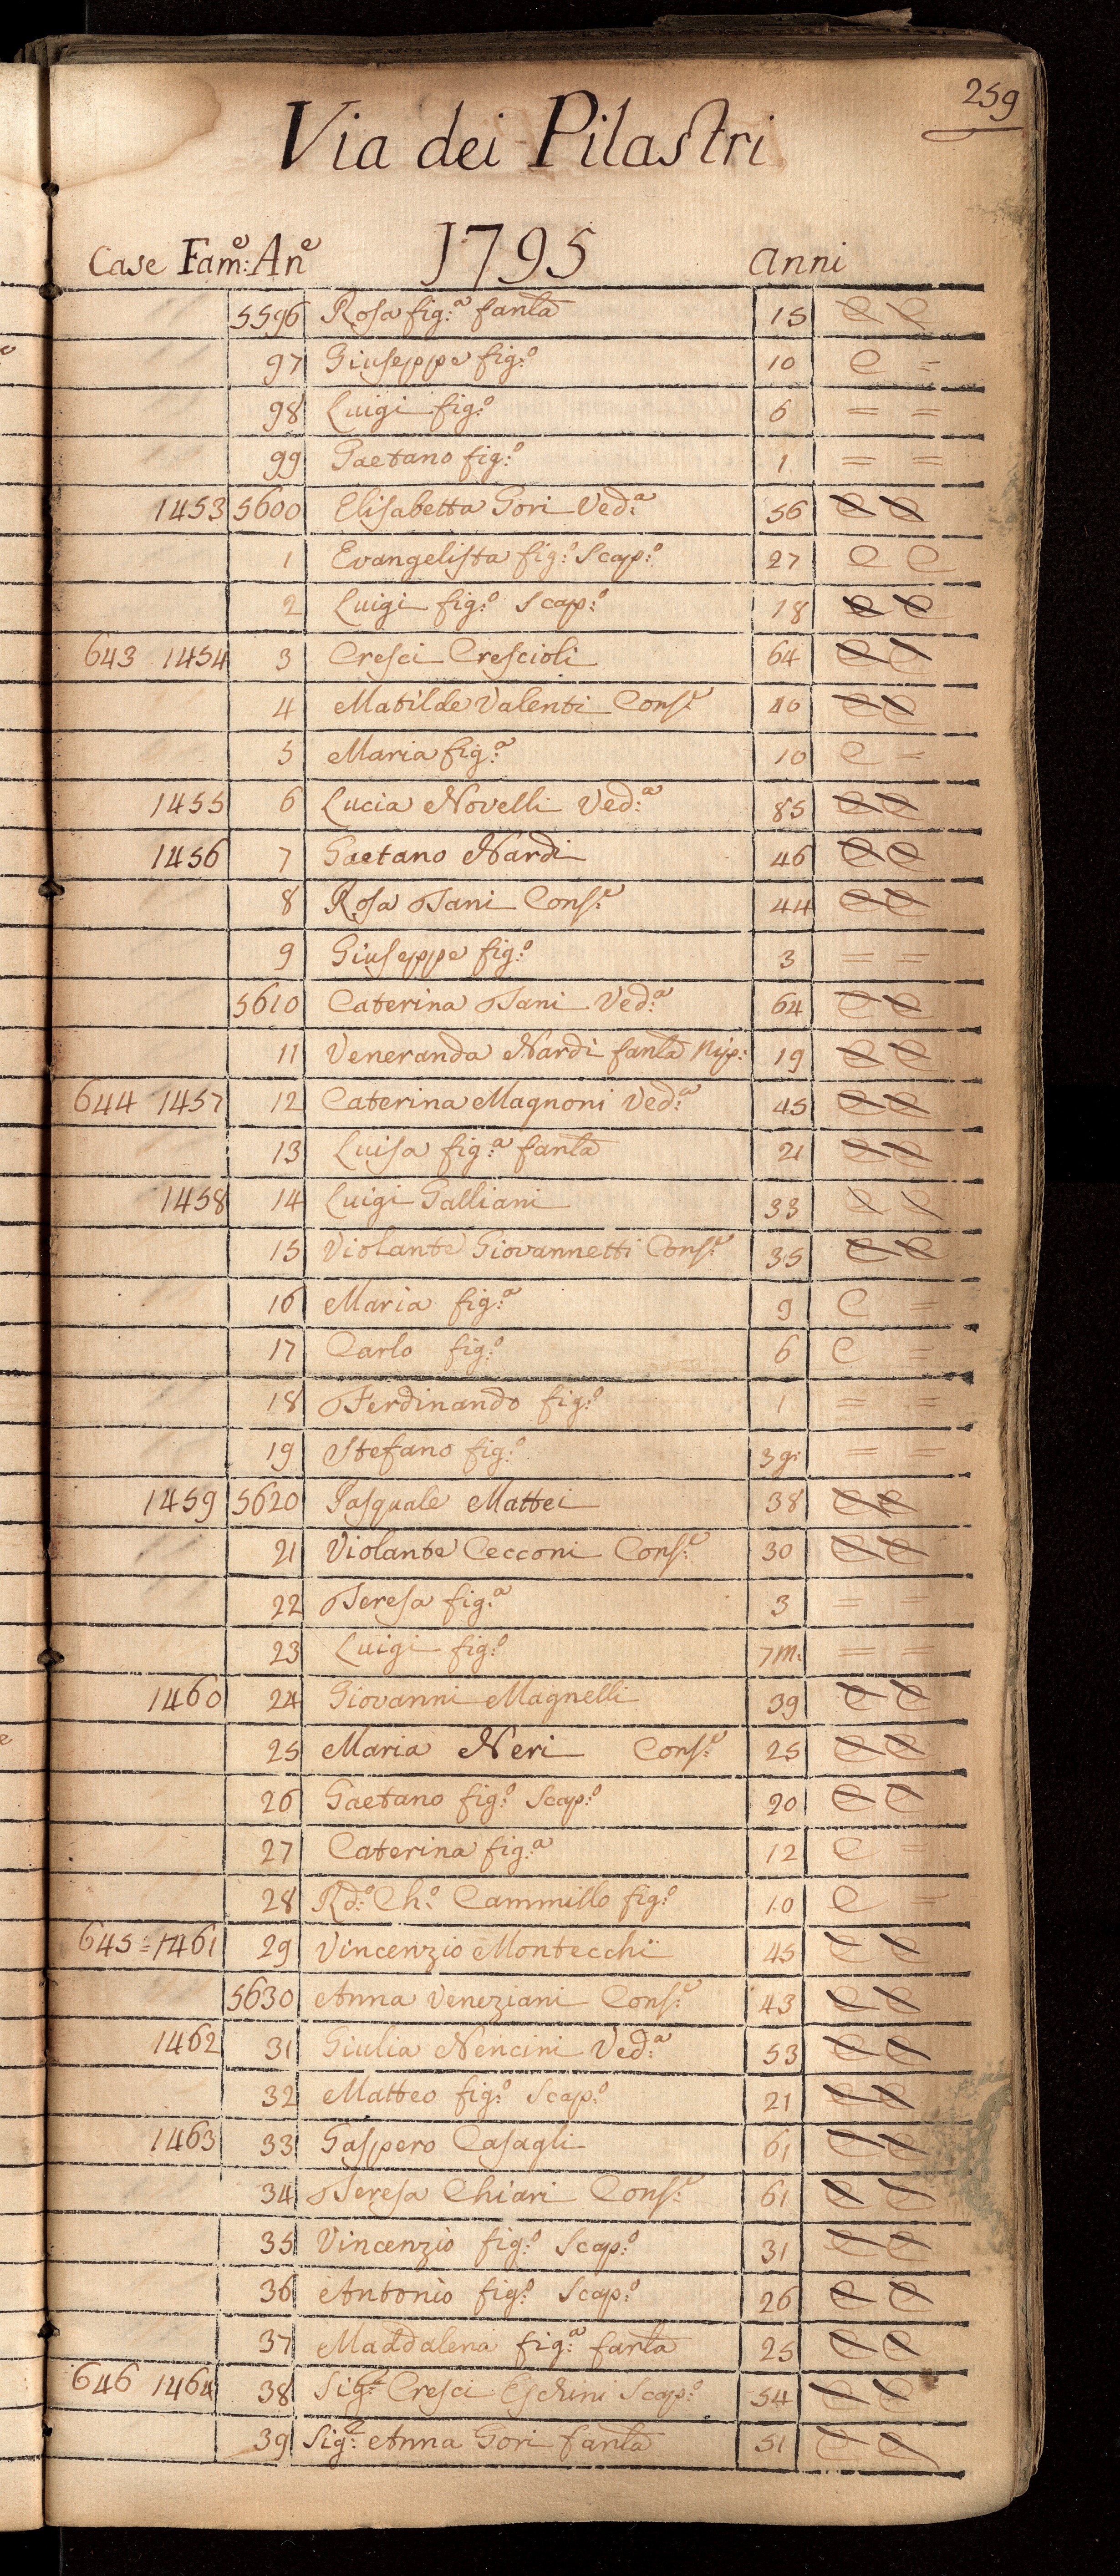 259
Via dei Pilastri
Case Fam:e An:e 1795 anni
5596 Rosa fig:a fanla 15 C C
97 Giuseppe fig:o 10 C =
98 Luigi fig:o 6 = =
99 Gaetano fig:o 1 = =
1453 5600 Elisabetta Gori Ved:a 56 C C
1 Evangelista fig:o Scap:o 27 C C
2 Luigi fig:o Scap:o 18 C C
643 1454 3 Cresci Crescioli 64 C C
4 Matilde Valenti Cons:e 40 C C
5 Maria fig:a 10 C =
1455 6 Lucia Novelli Ved:a 85 C C
1456 7 Gaetano Nardi 46 C C
8 Rosa Tani Cons:e 44 C C
9 Giuseppe fig:o 3 = =
5610 Caterina Tani Ved:a 64 C C
11 Veneranda Nardi fanla Nip: 19 C C
644 1457 12 Caterina Magnoni Ved:a 45 C C
13 Luisa fig:a fanla 21 C C
1458 14 Luigi Galliani 33 C C
15 Violante Giovannetti Cons:e 35 C C
16 Maria fig:a 9 C =
17 Carlo fig:o 6 C =
18 Ferdinando fig:o 1 = =
19 Stefano fig:o 3 g: = =
1459 5620 Pasquale Mattei 38 C C
21 Violante Cecconi Cons:e 30 C C
22 Teresa fig:a 3 = =
23 Luigi fig:o 7 m: = =
1460 24 Giovanni Magnelli 39 C C
25 Maria Neri Cons:e 25 C C
26 Gaetano fig:o Scap:o 20 C C
27 Caterina fig:a 12 C =
28 Rd:o Ch:o Cammillo fig:o 10 C =
645 = 1461 29 Vincenzio Montecchi 45 C C
5630 Anna Veneziani Cons:e 43 C C
1462 31 Giulia Nencini Ved:a 53 C C
32 Matteo fig:o Scap:o 21 C C
1463 33 Gaspero Casagli 61 C C
34 Teresa Chiari Cons:e 61 C C
35 Vincenzio fig:o Scap:o 31 C C
36 Antonio fig:o Scap:o 26 C C
37 Maddalena fig:a fanla 25 C C
646 1464 38 Sig:r Cresci Eschini Scap:o 54 C C
39 Sig:a Anna Gori fanla 51 C C